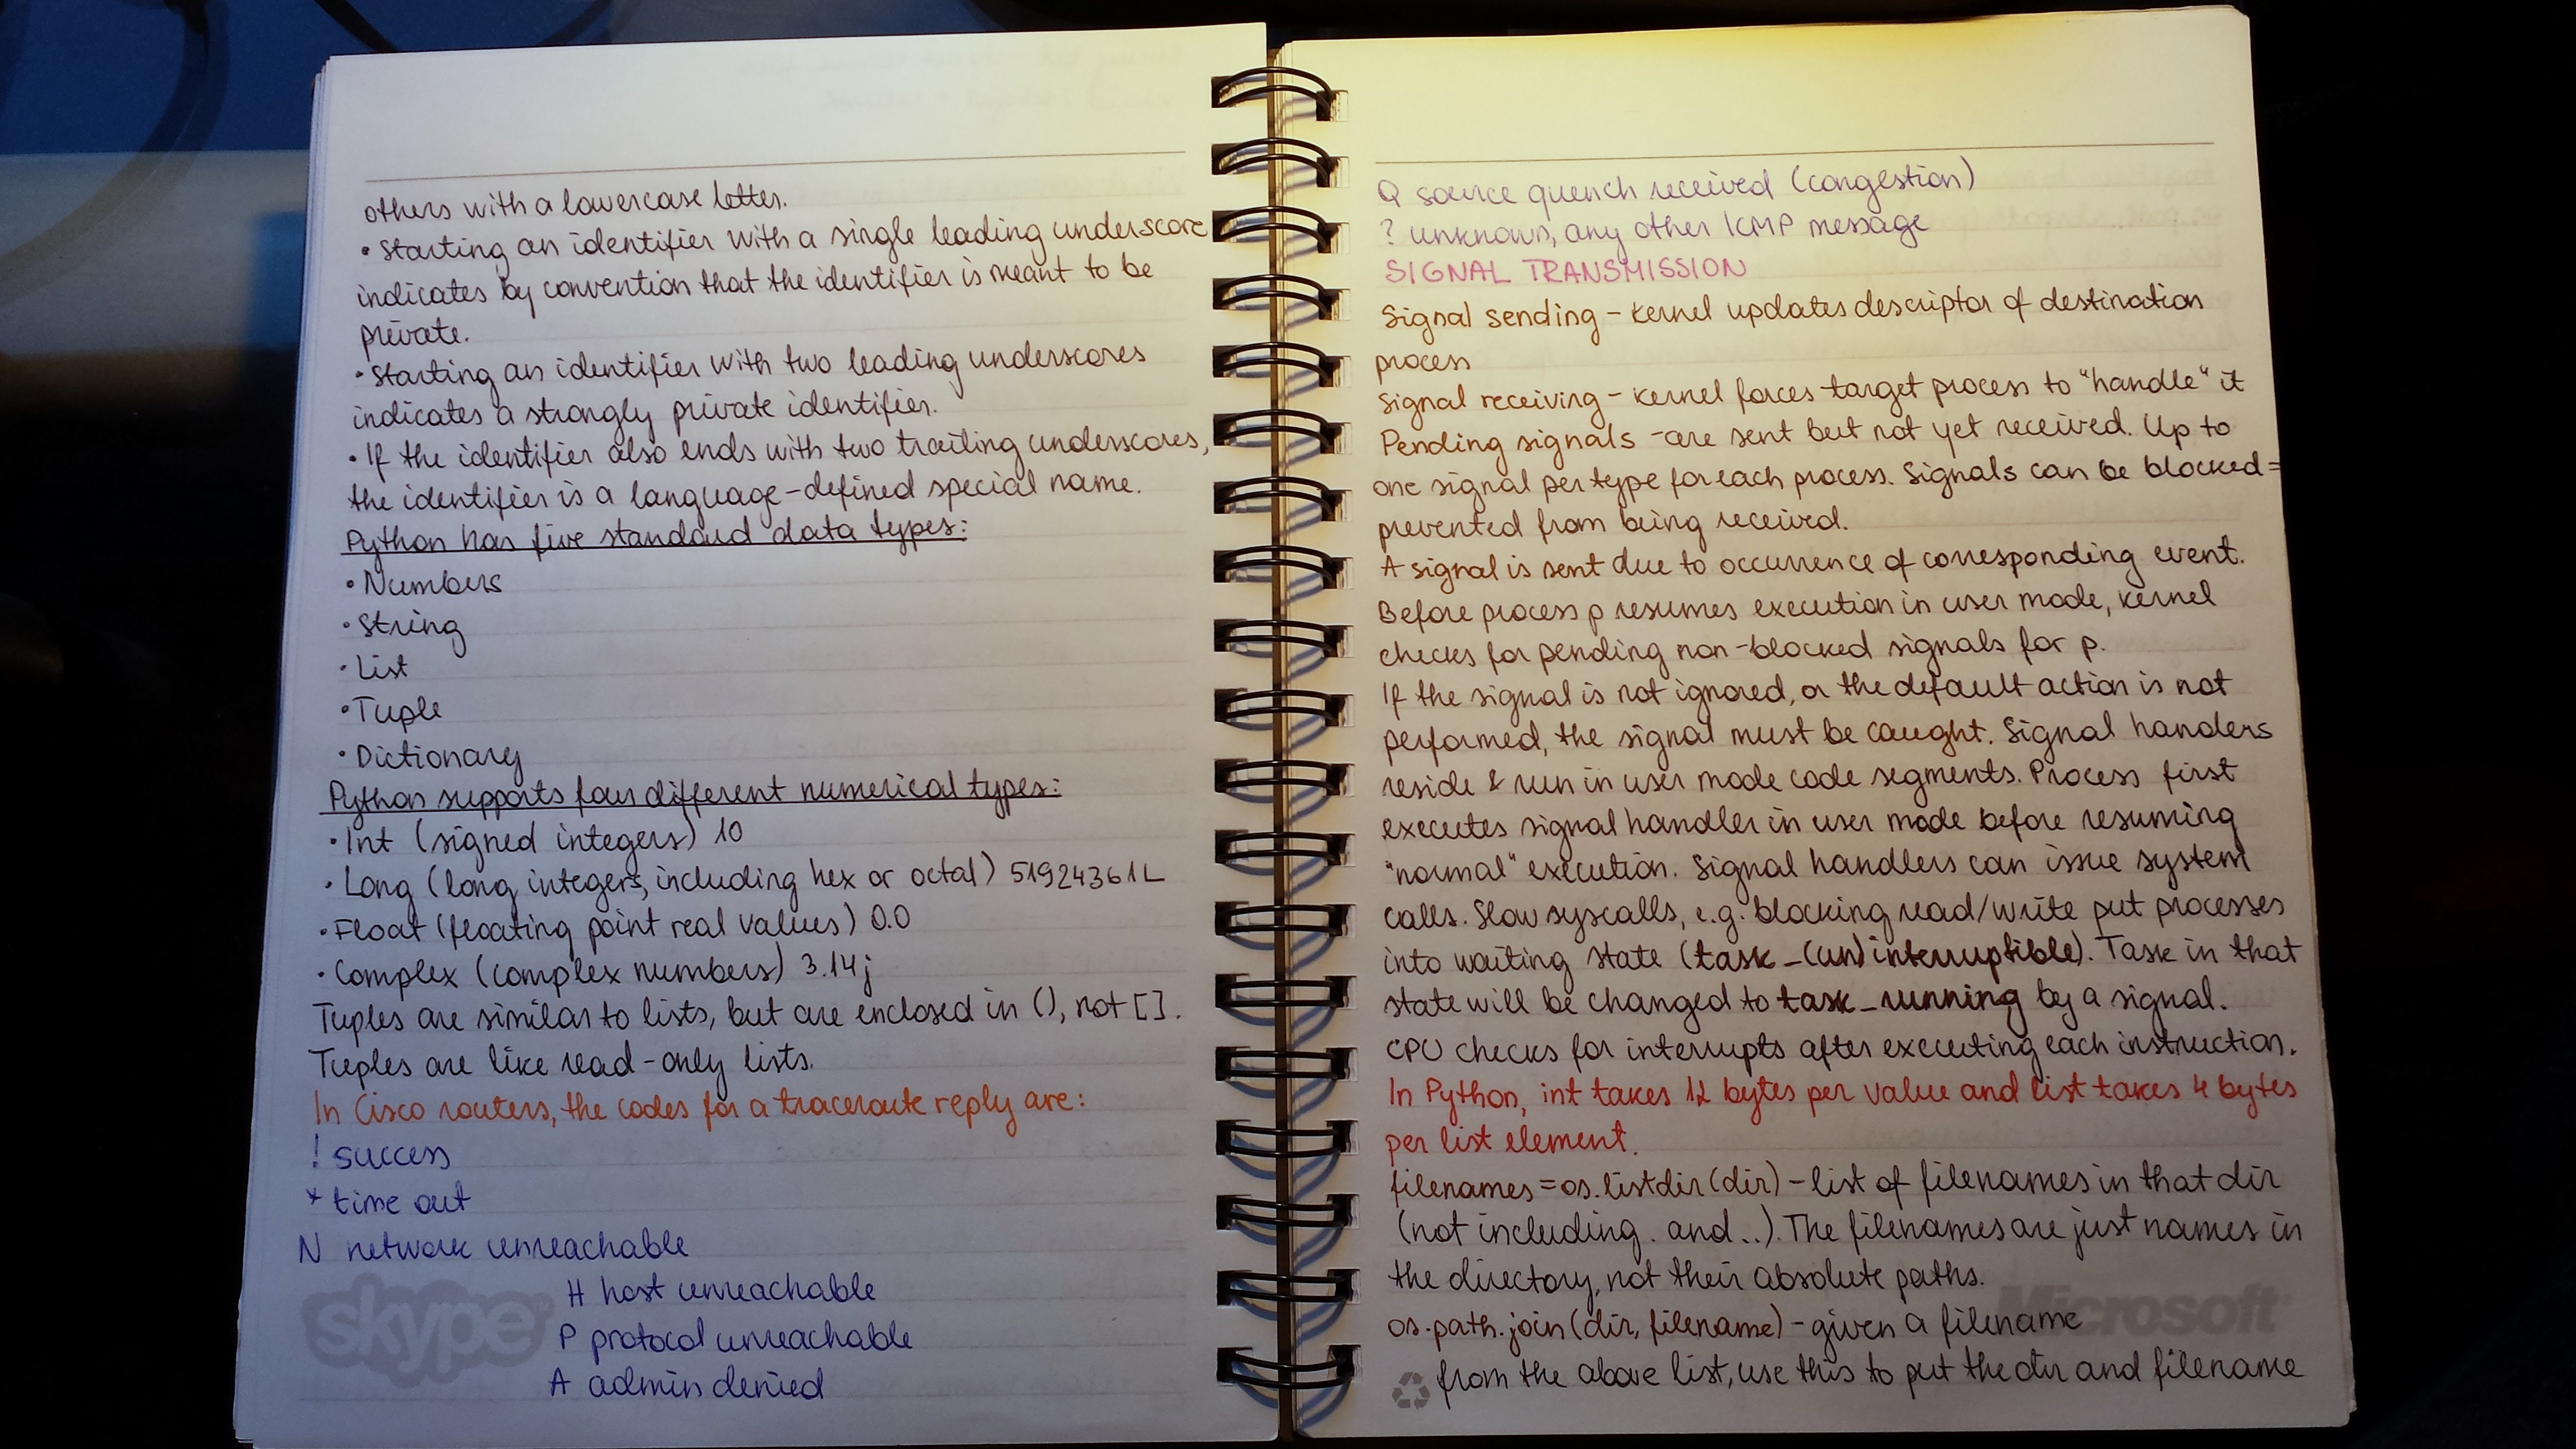 others with a lowercase letter.
• Starting an identifier with a single leading underscore
indicates by convention that the identifier is meant to be
private.
• Starting an identifier with two leading underscores
indicates a strongly private identifier.
• If the identifier also ends with two trailing underscores,
the identifier is a language-defined special name.
Python has five standard data types:
• Numbers
• String
• List
• Tuple
• Dictionary
Python supports four different numerical types:
• Int (signed integers) 10
• Long (long integers, including hex or octal) 51924361L
• Float (floating point real values) 0.0
• Complex (complex numbers) 3.14j
Tuples are similar to lists, but are enclosed in (), not [].
Tuples are like read-only lists.
In Cisco routers, the codes for a traceroute reply are:
! success
* time out
N network unreachable
H host unreachable
P protocol unreachable
A admin denied
skype
Q source quench received (congestion)
? unknown, any other ICMP message
SIGNAL TRANSMISSION
Signal sending - kernel updates descriptor of destination
process
Signal receiving - kernel forces target process to "handle" it
Pending signals - are sent but not yet received. Up to
one signal per type for each process. Signals can be blocked =
prevented from being received.
A signal is sent due to occurrence of corresponding event.
Before process p resumes execution in user mode, kernel
checks for pending non-blocked signals for p.
If the signal is not ignored, or the default action is not
performed, the signal must be caught. Signal handers
reside & run in user mode code segments. Process first
executes signal handler in user mode before resuming
"normal" execution. Signal handlers can issue system
calls. Slow syscalls, e.g. blocking read/write put processes
into waiting state (task_(un)interruptible). Task in that
state will be changed to task_running by a signal.
CPU checks for interrupts after executing each instruction.
In Python, int takes 12 bytes per value and list takes 4 bytes
per list element.
filenames = os.listdir(dir) - list of filenames in that dir
(not including . and ..). The filenames are just names in
the directory, not their absolute paths.
os.path.join(dir, filename) - given a filename
from the above list, use this to put the dir and filename
Microsoft